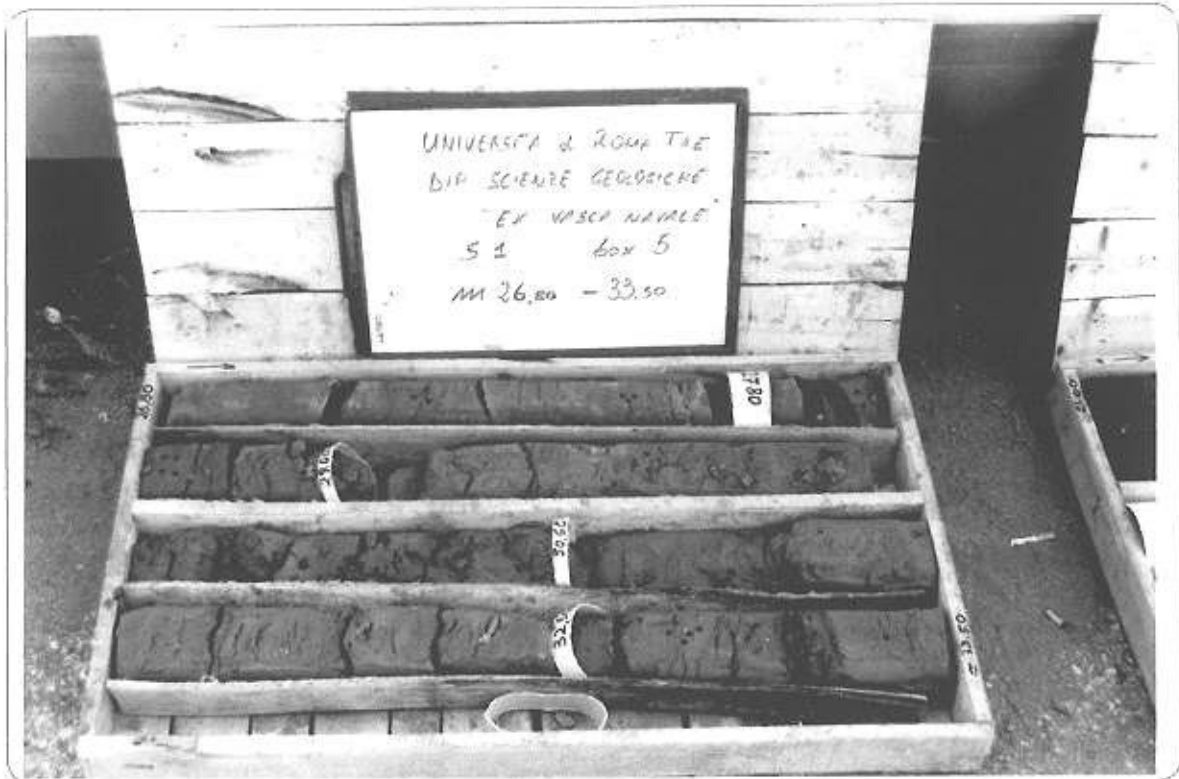 UNIVERSITA di ROMA TRE
DIP SCIENZE GEOLOGICHE
"EX VASCA NAVALE"
S 1 box 5
m 26,80 - 33,50
26,80
2780
29,0
30,50
32,0
33.50